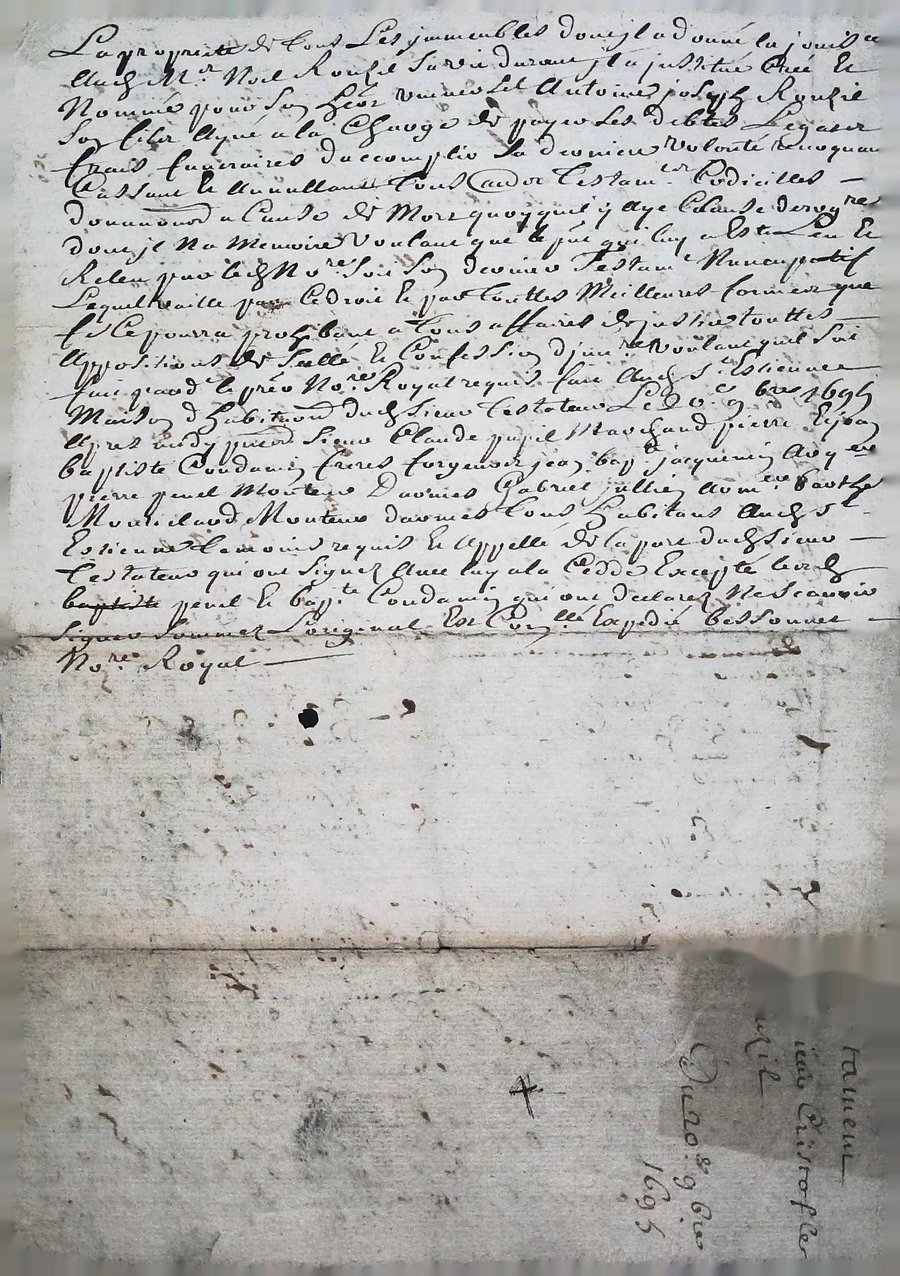 La propriete de tous Les jmmeubles donc jl a donné la jouis ce
Aud M.r Noel Rouzil Sa vie durant jl a jnstitué Créé Et
Nommé pour Son Heör universel Antoine joseph Rouzil
Son fils Ayné a la Charge de payer Ses debtes Legatz
frais funeraires daccomplir Sa derniere volonté revoquant
Cassant Et Annullant tous autres testam.ts Codicilles —
donnaõn a Cause de Mort quoyquil y aye Clause derog.re
donc jl Na Memoire voulant que le pñt qui luy a Esté Leu Et
Releu par led No.re Soit Son dernier Testam.t Nuncupatif
Lequel vaille par Ce droit Et par touttes Meilleures formes que
fe Ce pourra a tous affaires de justice touttes —
Appositions de Sellé Et Confession djn.re voulant quil Soit
fait grand le pñt No.re Royal requis fait Aud S.t Estienne
Maison dHabitaõn dud Sieur testateur Le 20.e 9.bre 1695
Apres midy pñtd Sieur Claude pupil Marchand pierre Et jean
baptiste Condamin freres forgeurs jean bap.te jacquemin
pierre penel Monteur Darmes Gabriel jullien
Monteur darmes tous Habitans Aud S.t
Estienne temoins requis Et Appellé de la part dud Sieur —
testateur qui ont Signez Avec luy a la Cedde Excepté lesd
baptiste penel Et bap.te Condamin qui ont declarez Ne Scavoir
Signer Sommez Loriginal Est Con.llé Expedié bessonnet —
No.re Royal —
tament
Cristofle
uzil
Du 20.e 9bre
1695